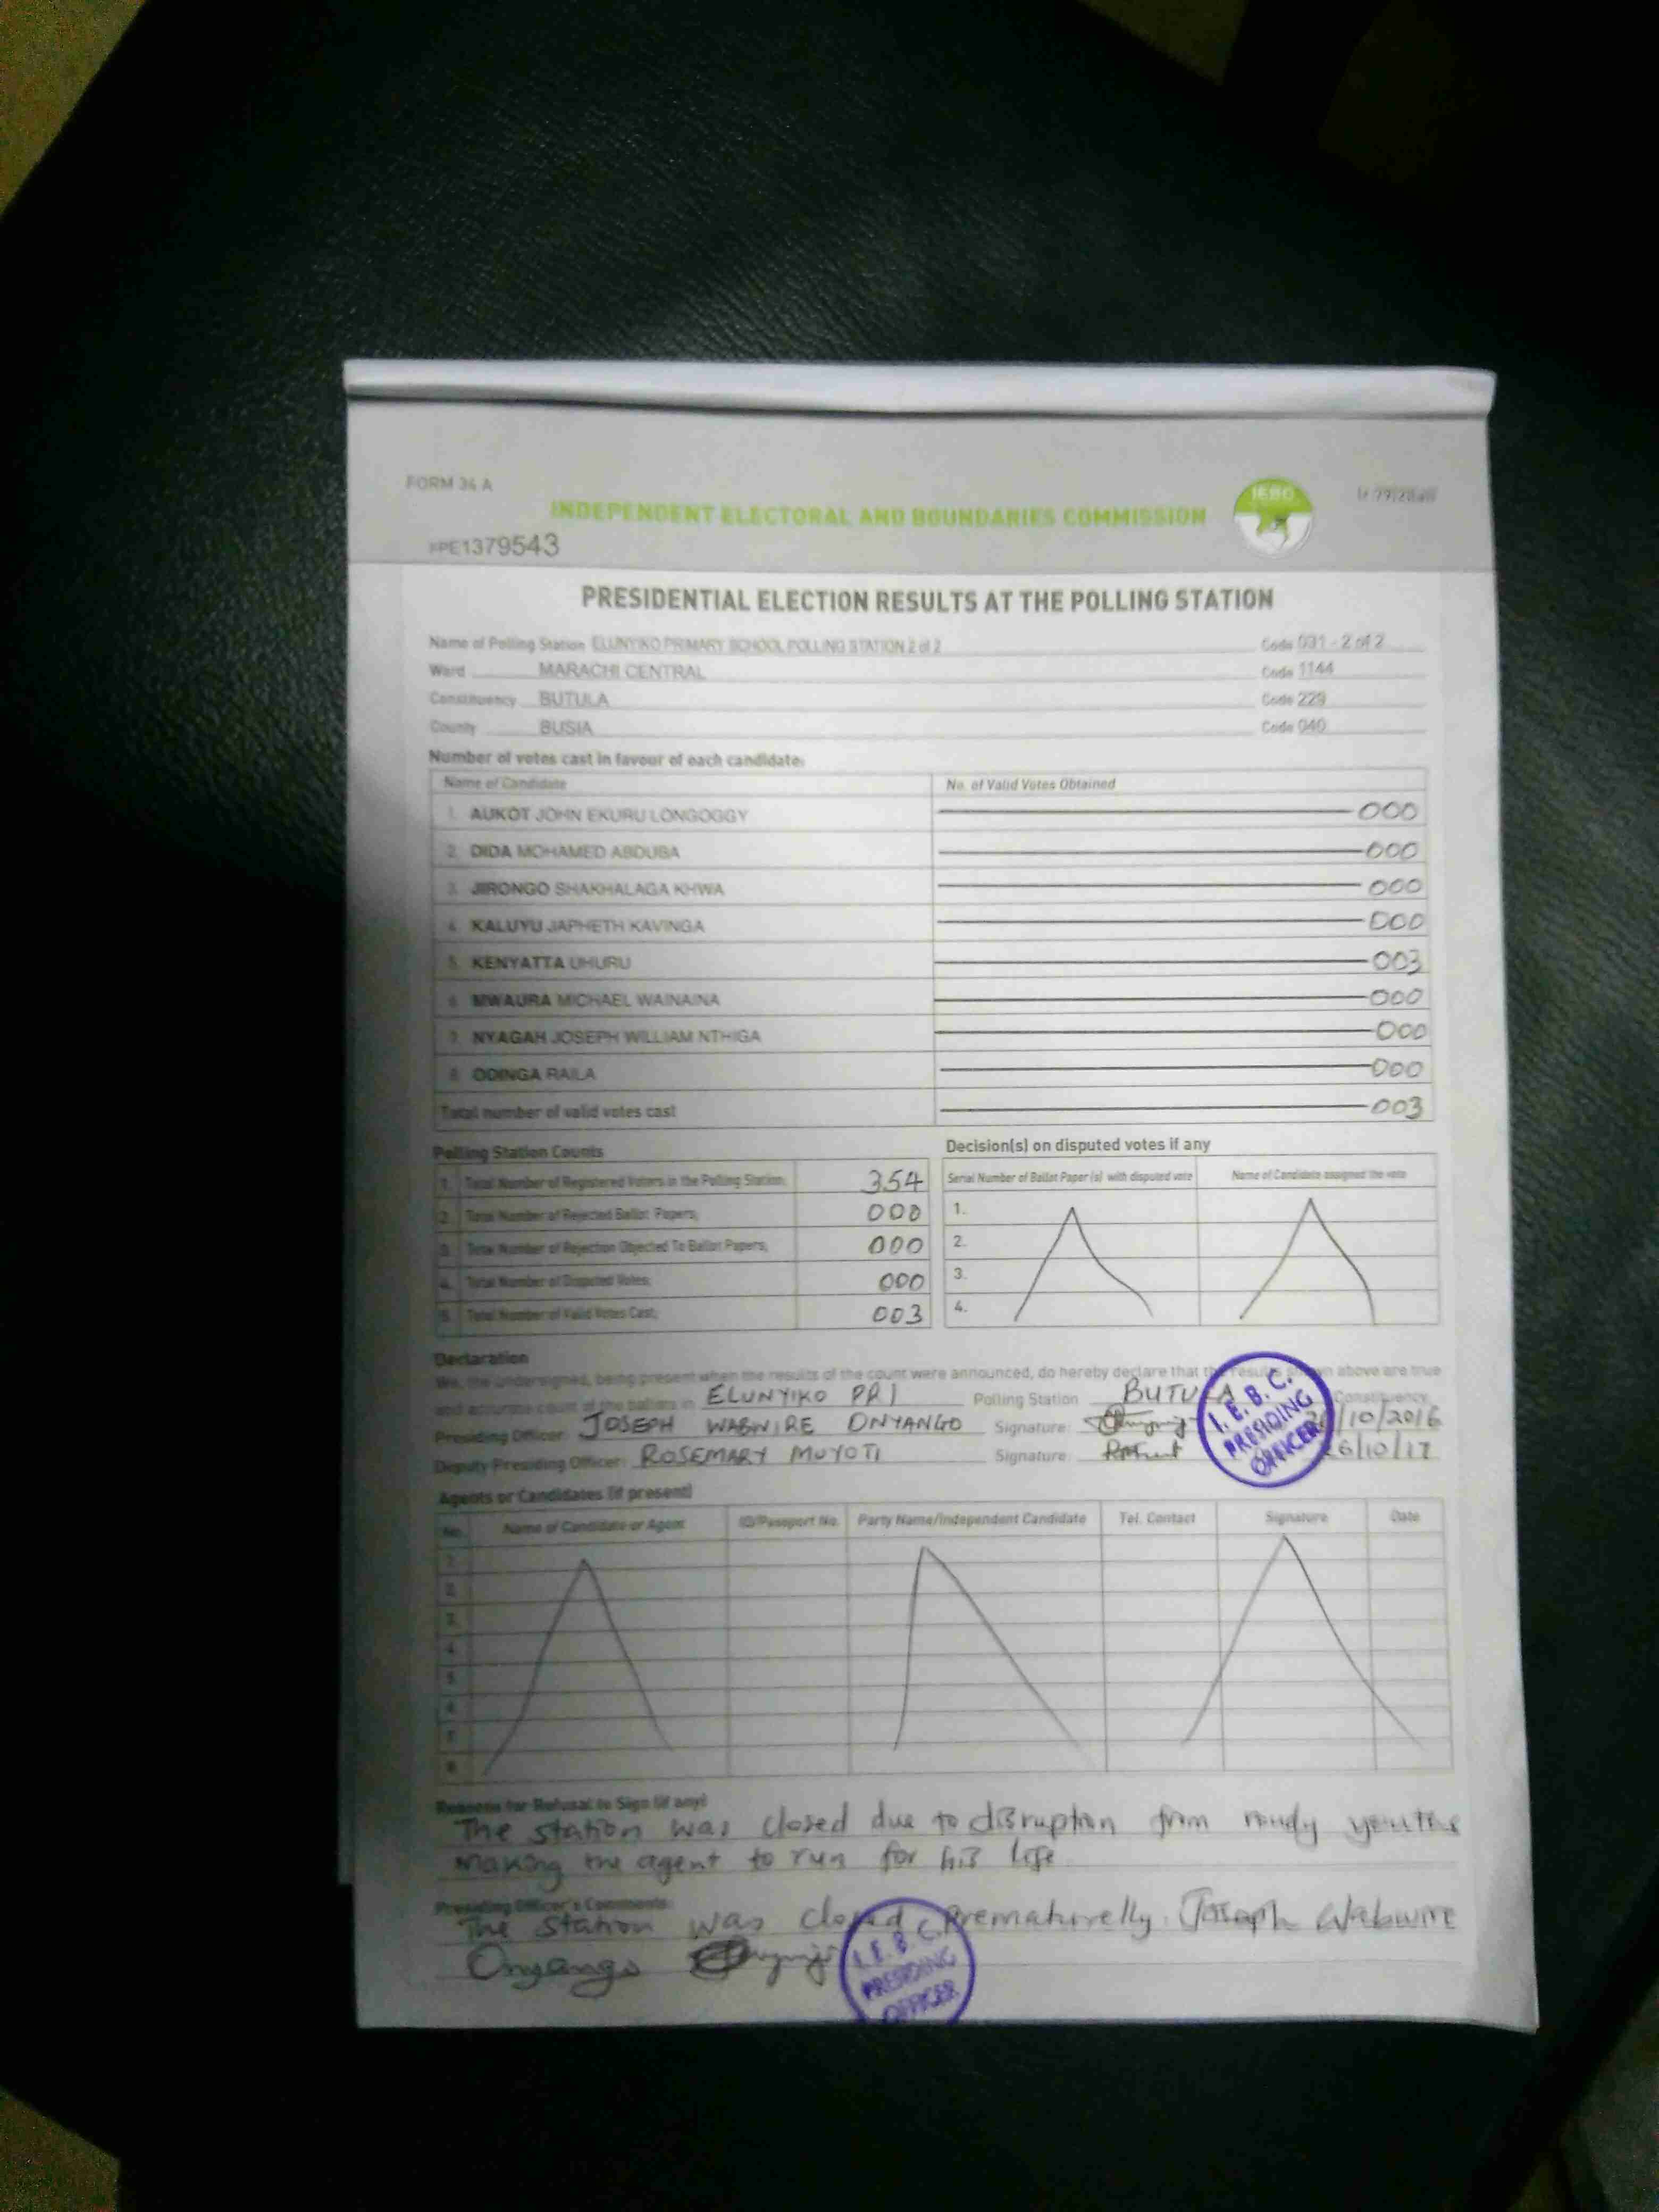 FORM 34 A
IEBC
INDEPENDENT ELECTORAL AND BOUNDARIES COMMISSION
PE1379543
PRESIDENTIAL ELECTION RESULTS AT THE POLLING STATION
Name of Polling Station ELUNYIKO PRIMARY SCHOOL POLLING STATION 2 of 2 Code 031 - 2 of 2
Ward MARACHI CENTRAL Code 1144
Constituency BUTULA Code 229
County BUSIA Code 040
Number of votes cast in favour of each candidate:
Name of Candidate No. of Valid Votes Obtained
1. AUKOT JOHN EKURU LONGOGGY 000
2. DIDA MOHAMED ABDUBA 000
3. JIRONGO SHAKHALAGA KHWA 000
4. KALUYU JAPHETH KAVINGA 000
5. KENYATTA UHURU 003
6. MWAURA MICHAEL WAINAINA 000
7. NYAGAH JOSEPH WILLIAM NTHIGA 000
8. ODINGA RAILA 000
Total number of valid votes cast 003
Polling Station Counts
1. Total Number of Registered Voters in the Polling Station; 354
2. Total Number of Rejected Ballot Papers; 000
3. Total Number of Rejection Objected To Ballot Papers; 000
4. Total Number of Disputed Votes; 000
5. Total Number of Valid Votes Cast; 003
Decision(s) on disputed votes if any
Serial Number of Ballot Paper(s) with disputed vote Name of Candidate assigned the vote
1.
2.
3.
4.
Declaration
We, the undersigned, being present when the results of the count were announced, do hereby declare that the results above are true
and accurate count of the ballots in ELUNYIKO PRI Polling Station BUTULA Constituency
Presiding Officer: JOSEPH WABWIRE ONYANGO Signature: /10/2016
Deputy Presiding Officer: ROSEMARY MUYOTI Signature: 6/10/17
I.E.B.C.
PRESIDING
OFFICER
Agents or Candidates (if present)
No. Name of Candidate or Agent ID/Passport No. Party Name/Independent Candidate Tel. Contact Signature Date
1.
2.
3.
4.
5.
6.
7.
8.
Reasons for Refusal to Sign (if any)
The station was closed due to disruption from rowdy youths
making the agent to run for his life
Presiding Officer's Comments:
The station was closed prematurelly. Joseph Wabwire
Onyango
I.E.B.C.
PRESIDING
OFFICER